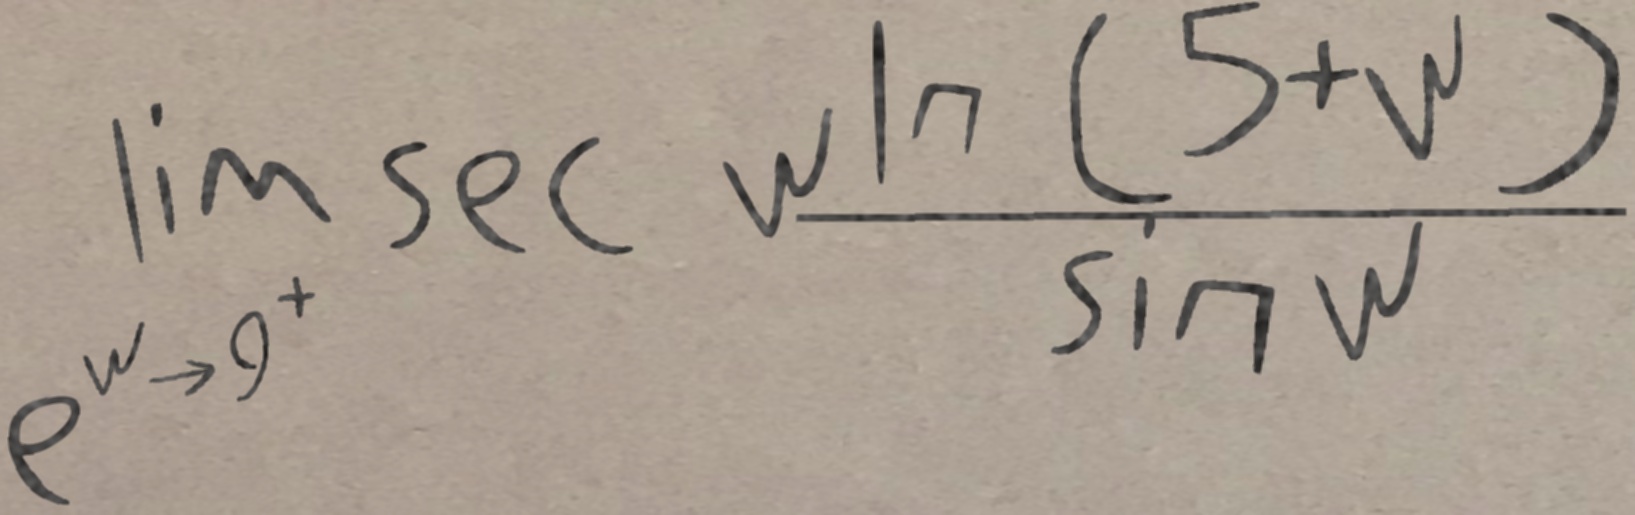 \lim_{e^{w \to 9^+}} \sec w \frac{\ln(5+w)}{\sin w}